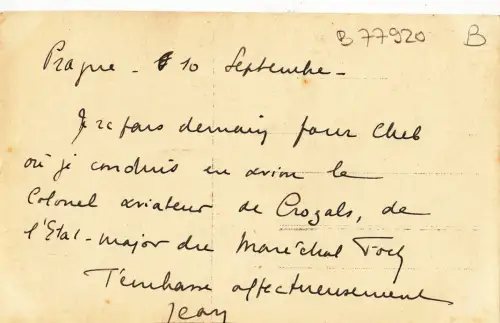 B 77920 B
Prague - 10 Septembre -
Je repars demain pour Cheb
où je conduis en avion le
Colonel aviateur de Crozals, de
l'État-major du Maréchal Foch
T'embrasse affectueusement
Jean